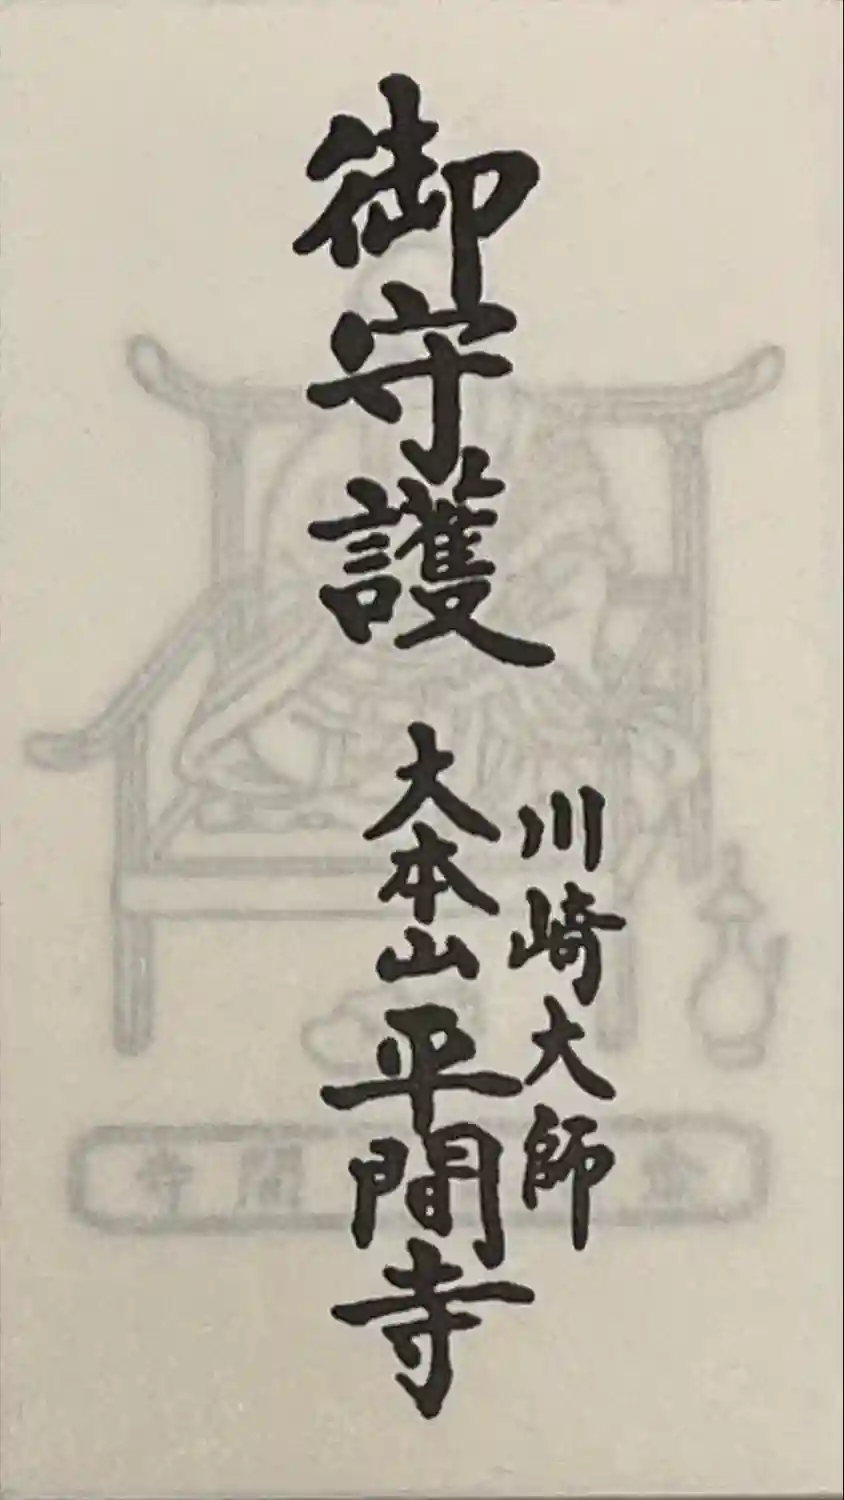 御守護
川崎大師
大本山平間寺